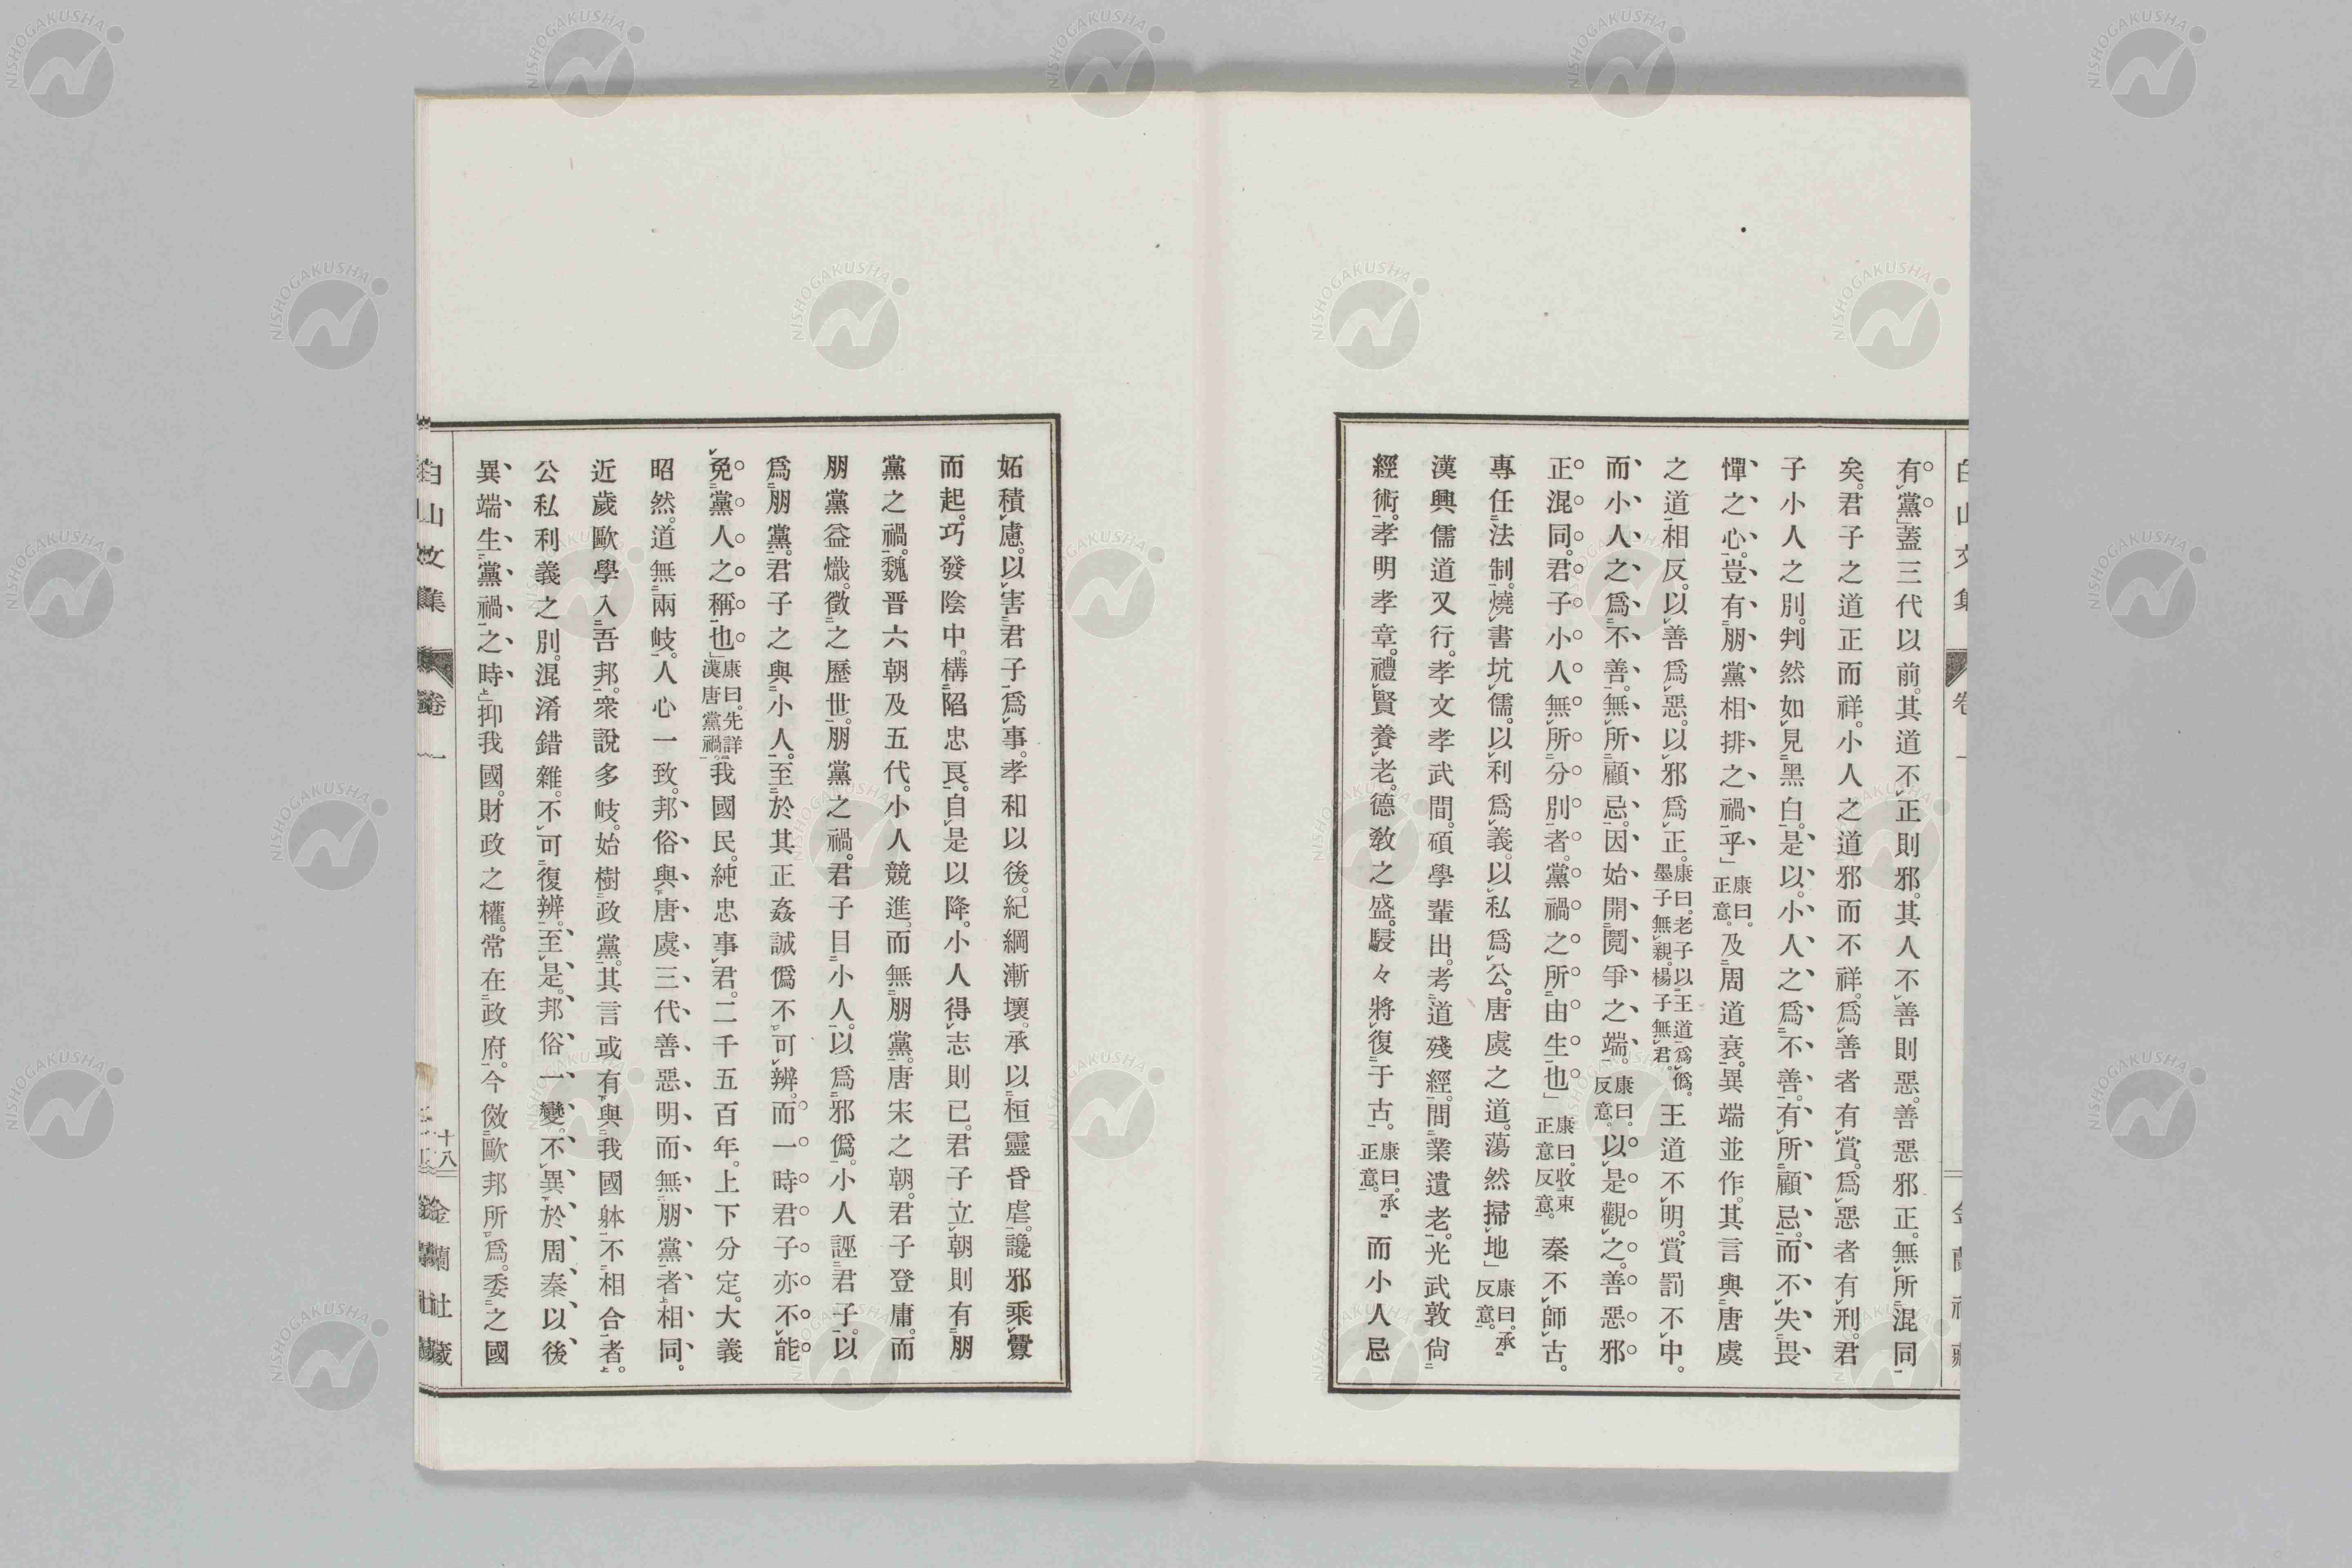 白山文集 卷一 金蘭社藏
有黨」蓋三代以前。其道不正則邪。其人不善則惡。善惡邪正。無所混同
矣。君子之道正而祥。小人之道邪而不祥。爲善者有賞。爲惡者有刑。君
子小人之別。判然如見黑白。是以小人之爲不善。有所顧忌。而不失畏
憚之心。豈有朋黨相排之禍乎」康曰。正意。及周道衰。異端並作。其言與唐虞
之道相反。以善爲惡。以邪爲正。康曰。老子以王道爲僞。墨子無親。楊子無君。王道不明。賞罰不中。
而小人之爲不善。無所顧忌。因始開鬩爭之端。康曰。反意。以是觀之。善惡邪
正混同。君子小人無所分別者。黨禍之所由生也」康曰。收束正意反意。秦不師古。
專任法制。燒書坑儒。以利爲義。以私爲公。唐虞之道。蕩然掃地」康曰。承反意。
漢興儒道又行。孝文孝武間。碩學輩出。考道殘經。問業遺老。光武敦尙
經術。孝明孝章。禮賢養老。德敎之盛。駸々將復于古。康曰。承正意。而小人忌
妬積慮。以害君子爲事。孝和以後。紀綱漸壞。承以桓靈昏虐。讒邪乘釁
而起。巧發陰中。構陷忠良。自是以降。小人得志則已。君子立朝則有朋
黨之禍。魏晋六朝及五代。小人競進。而無朋黨。唐宋之朝。君子登庸。而
朋黨益熾。徵之歷世。朋黨之禍。君子目小人。以爲邪僞。小人誣君子。以
爲朋黨。君子之與小人。至於其正姦誠僞不可辨。而一時君子亦不能
免黨人之稱也」康曰。先詳漢唐黨禍。我國民。純忠事君。二千五百年。上下分定。大義
昭然。道無兩岐。人心一致。邦俗與唐虞三代善惡明而無朋黨者相同。
近歲歐學入吾邦。衆說多岐。始樹政黨。其言或有與我國躰不相合者。
公私利義之別。混淆錯雜。不可復辨。至是。邦俗一變。不異於周秦以後
異端生黨禍之時。抑我國。財政之權。常在政府。今傚歐邦所爲。委之國
白山文集 卷一 十八 金蘭社藏